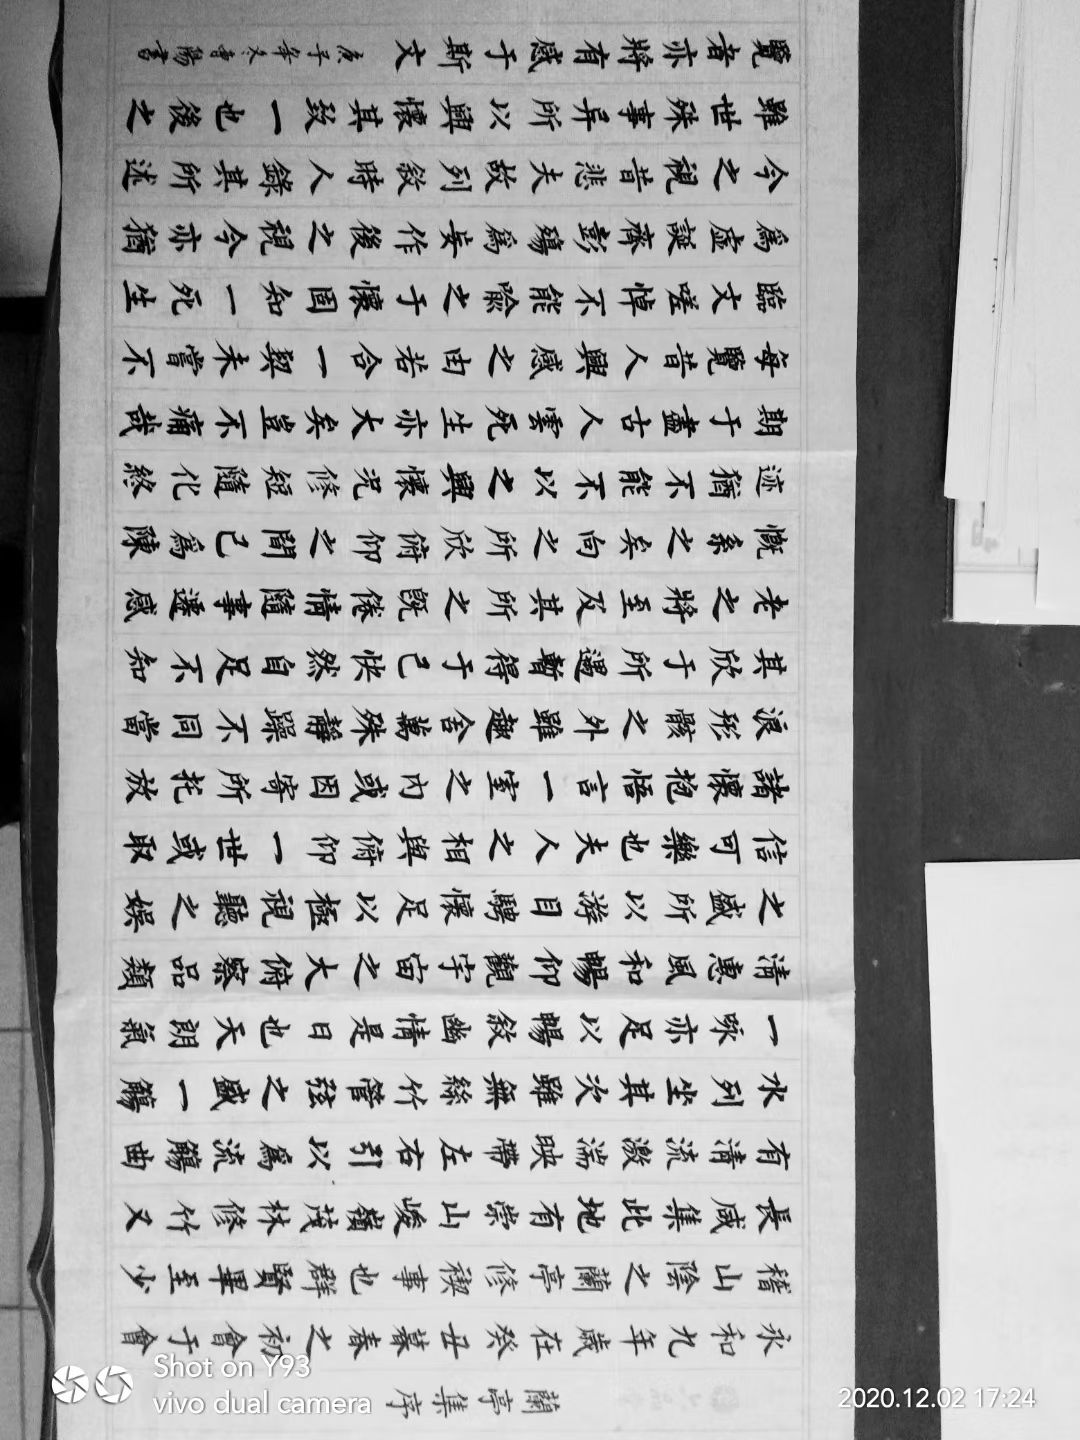 蘭亭集序
永和九年歲在癸丑暮春之初會于會
稽山陰之蘭亭修禊事也群賢畢至少
長咸集此地有崇山峻嶺茂林修竹又
有清流激湍映帶左右引以爲流觴曲
水列坐其次雖無絲竹管弦之盛一觴
一咏亦足以暢敘幽情是日也天朗氣
清惠風和暢仰觀宇宙之大俯察品類
之盛所以游目騁懷足以極視聽之娛
信可樂也夫人之相與俯仰一世或取
諸懷抱悟言一室之内或因寄所托放
浪形骸之外雖趣舍萬殊靜躁不同當
其欣于所遇暫得于己快然自足不知
老之將至及其所之既倦情隨事遷感
慨系之矣向之所欣俯仰之間已爲陳
迹猶不能不以之興懷況修短隨化終
期于盡古人雲死生亦大矣豈不痛哉
每覽昔人興感之由若合一契未嘗不
臨文嗟悼不能喻之于懷固知一死生
爲虛誕齊彭殤爲妄作後之視今亦猶
今之視昔悲夫故列敘時人錄其所述
雖世殊事异所以興懷其致一也後之
覽者亦將有感于斯文 庚子年冬書
Shot on Y93
vivo dual camera
2020.12.02 17:24